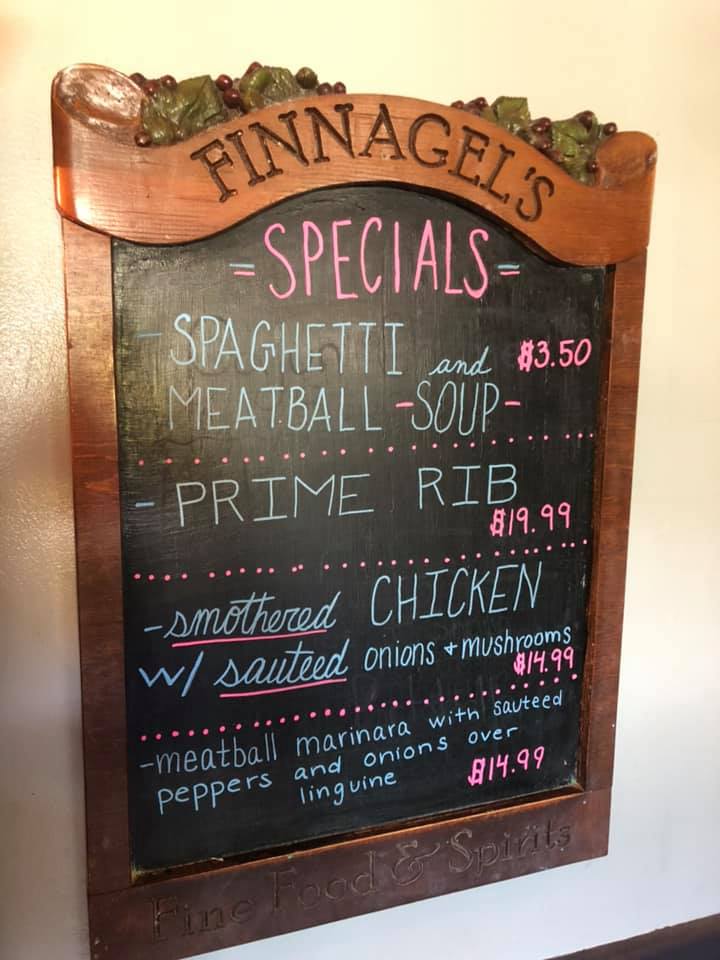 FINNAGEL'S
=SPECIALS=
- SPAGHETTI and $3.50
MEATBALL -SOUP-
- PRIME RIB
$19.99
- smothered CHICKEN
w/ sauteed onions + mushrooms
$14.99
- meatball marinara with sauteed
peppers and onions over
linguine $14.99
Fine Food & Spirits